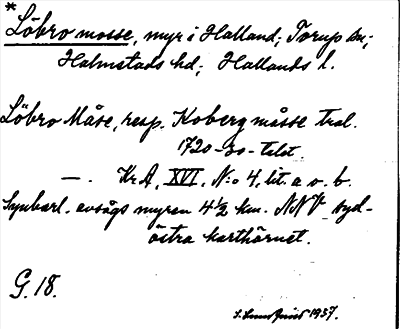 *
Löbro mosse, myr i Halland; Torup sn;
Halmstads hd; Hallands l.
Löbro Måse, resp. Koberg måsse trol.
1720-30-talet.
—. Kr.A, XVI, N:o 4, lit. a o. b.
Synbarl. avsågs myren 4 1/2 km. NNV syd-
östra karthörnet.
G. 18.
1937.